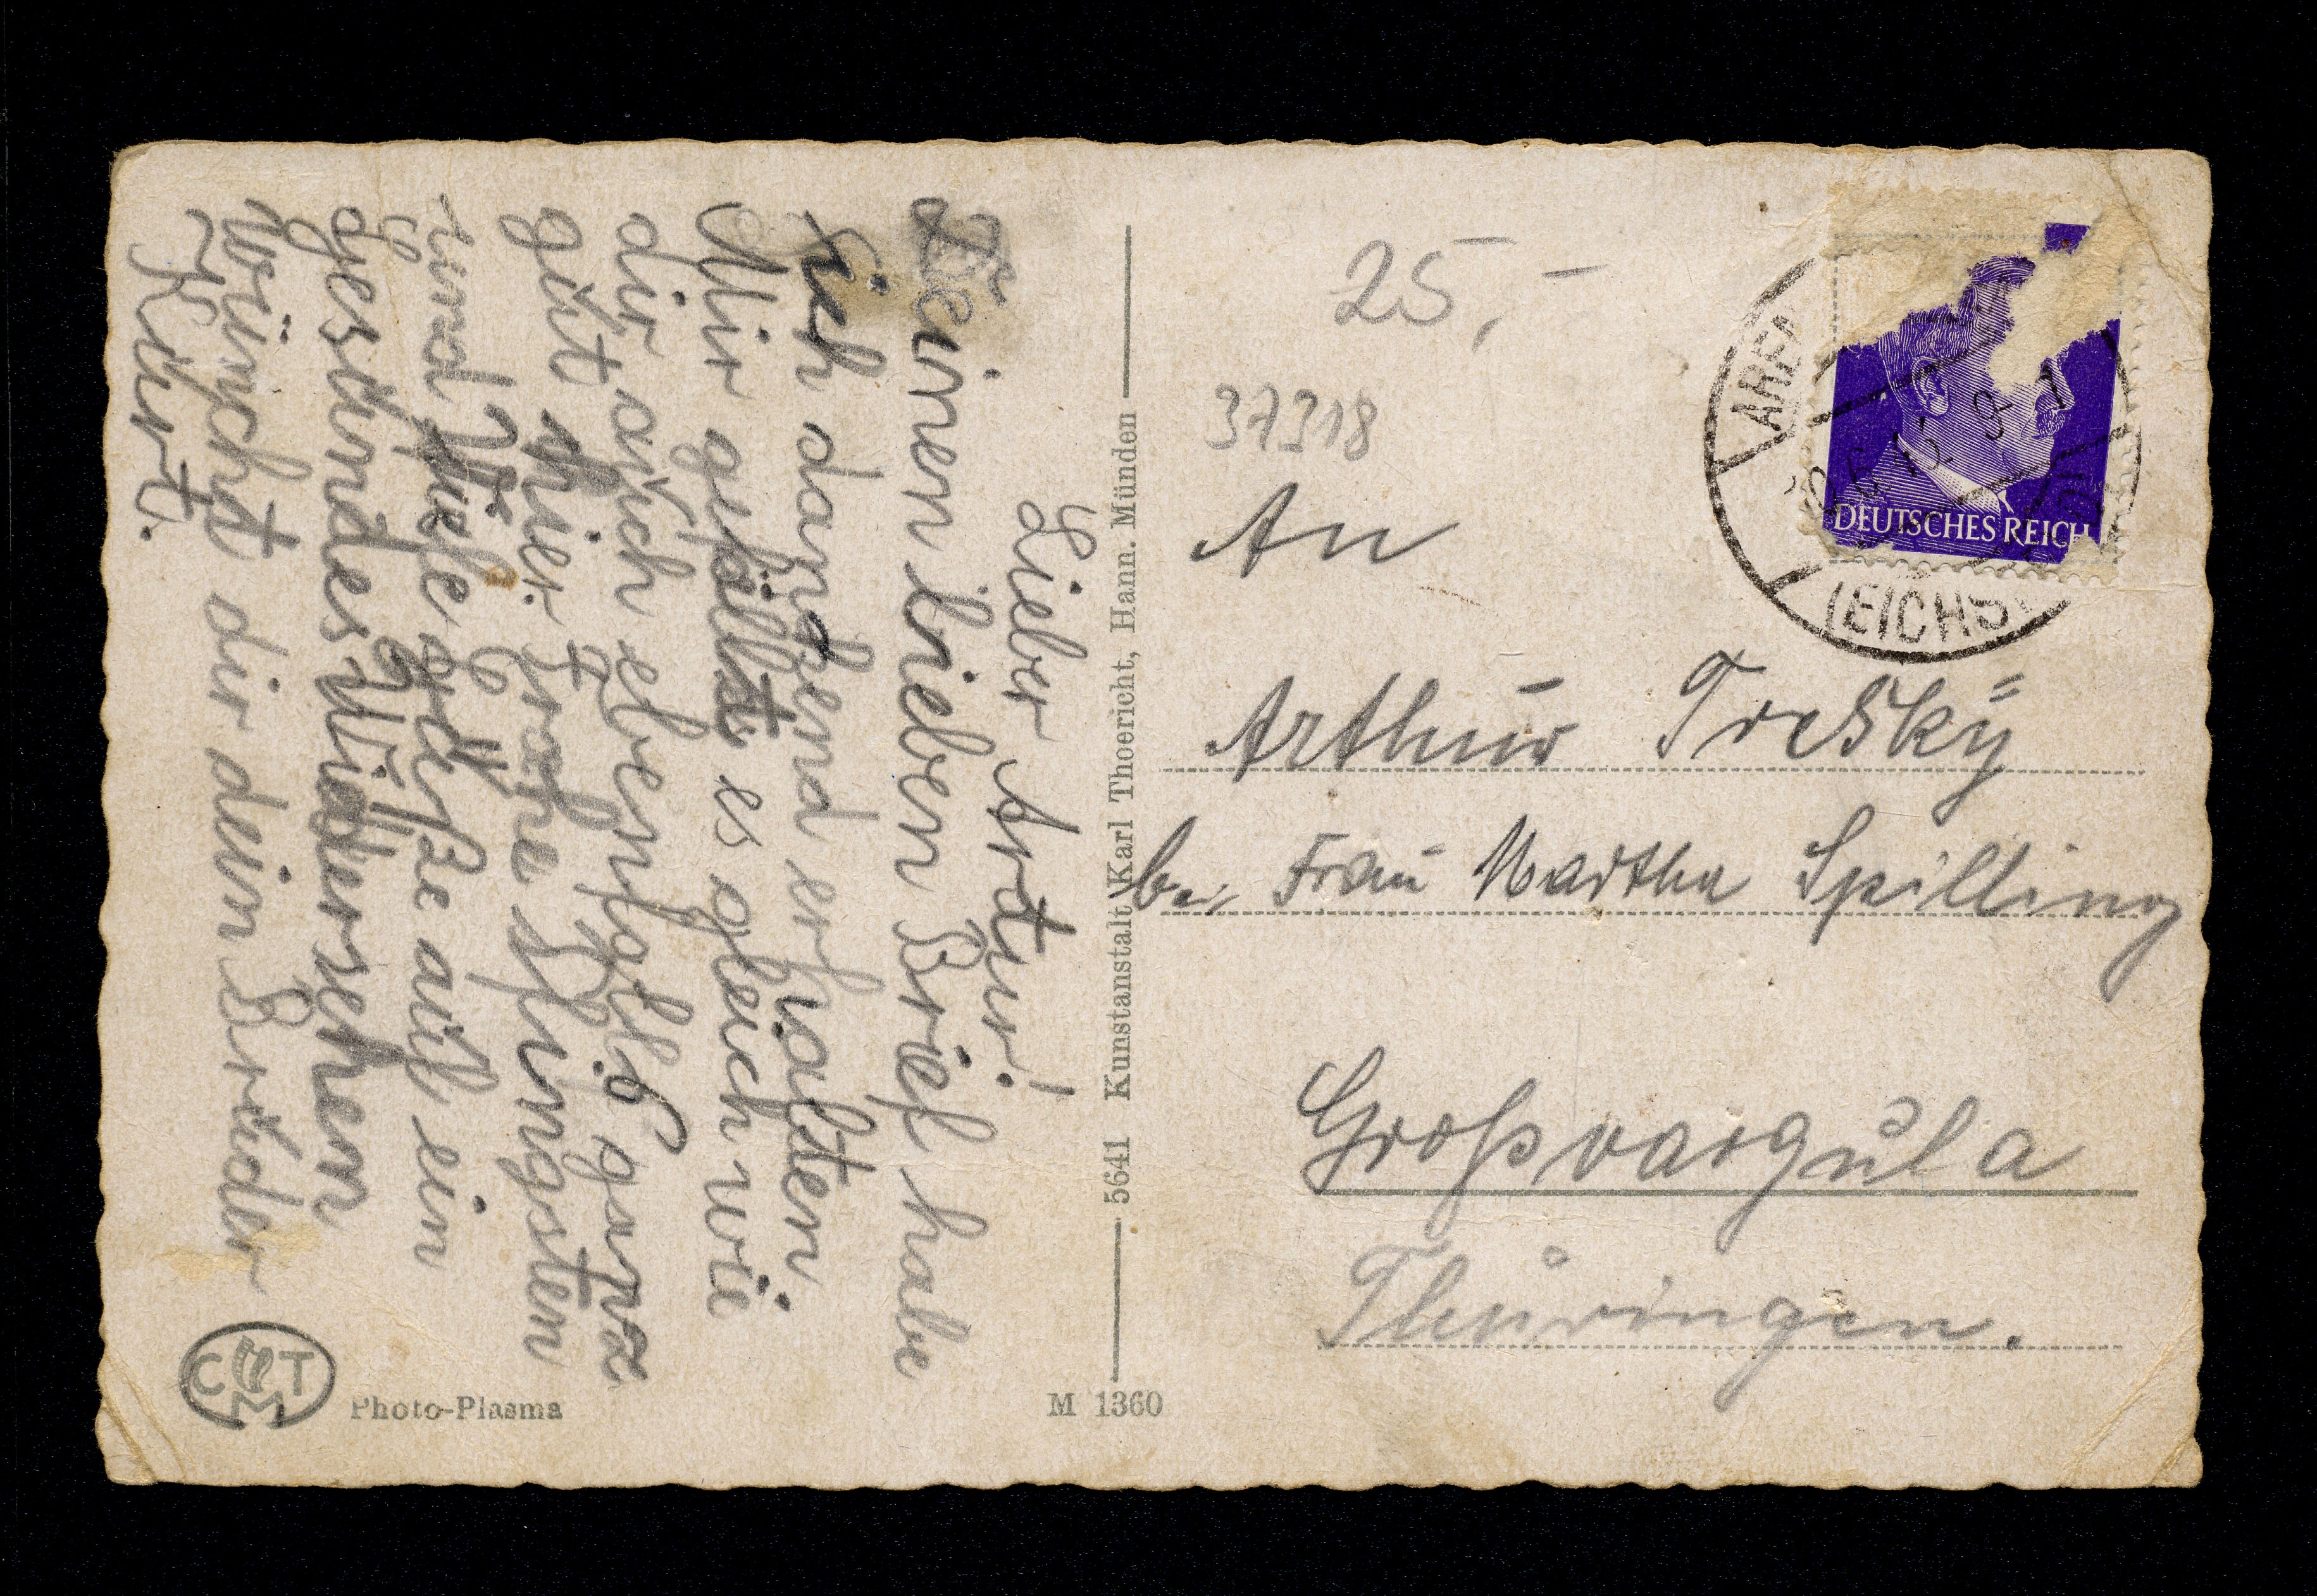 Lieber Artur!
Deinen lieben Brief habe
ich dankend erhalten.
Mir gefällts es gleich wie
dir auch ebenfalls ganz
gut hier. Frohe Pfingsten
und Viele grüße auf ein
gesundes Wiedersehen
wünscht dir dein Bruder
Kurt.
C T M
Photo-Plasma
M 1360
5641 Kunstanstalt Karl Thoericht, Hann. Münden
25,-
37318
DEUTSCHES REICH
An
Arthur Tresky
bei Frau Martha Spilling
Großvargula
Thüringen.